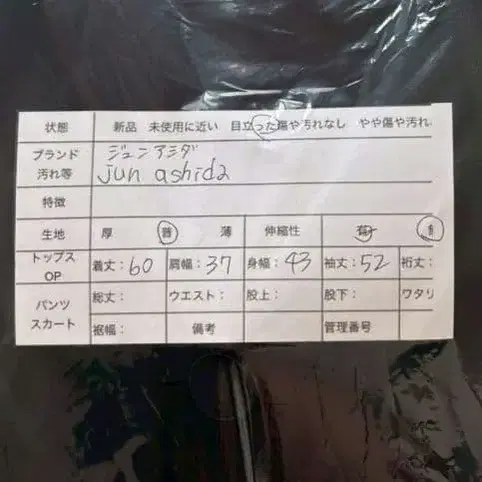 状態 新品 未使用に近い 目立った傷や汚れなし やや傷や汚れ
ブランド ジュンアシダ
汚れ等 jun ashida
特徴
生地 厚 普 薄 伸縮性 有
トップス OP 着丈：60 肩幅：37 身幅：43 袖丈：52 裄丈：
パンツ スカート 総丈： ウエスト： 股上： 股下： ワタリ
裾幅： 備考 管理番号